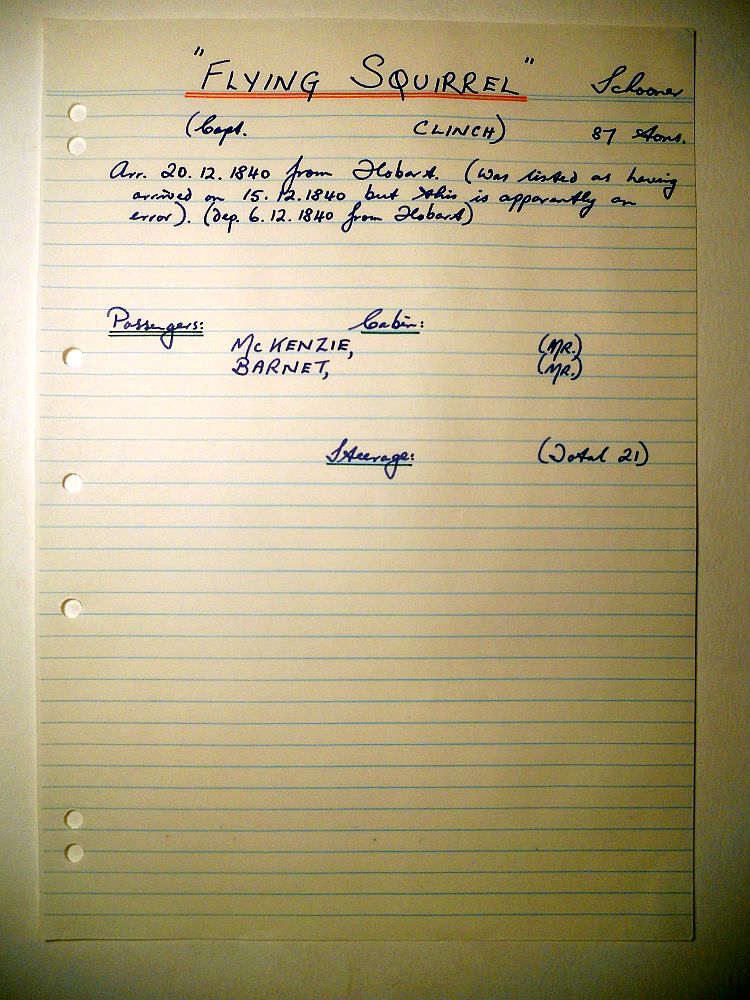 "FLYING SQUIRREL" Schooner
(Capt. CLINCH) 87 tons.
Arr. 20.12.1840 from Hobart. (Was listed as having
arrived on 15.12.1840 but this is apparently an
error). (Dep. 6.12.1840 from Hobart)
Passengers: Cabin:
McKENZIE, (MR.)
BARNET, (MR.)
Steerage: (Total 21)